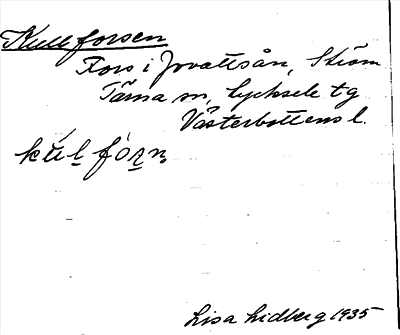 Kullforsen
Fors i Jovattsån, Ström
Tärna sn, Lycksele tg
Västerbottens l.
Lisa Lidberg 1935